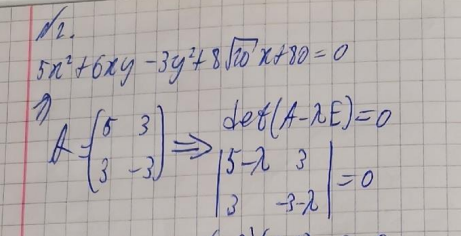 №2.
5x²+6xy−3y²+8√10 x+80=0
A=(5 3
3 −3) ⇒ det(A−λE)=0
|5−λ 3
3 −3−λ|=0